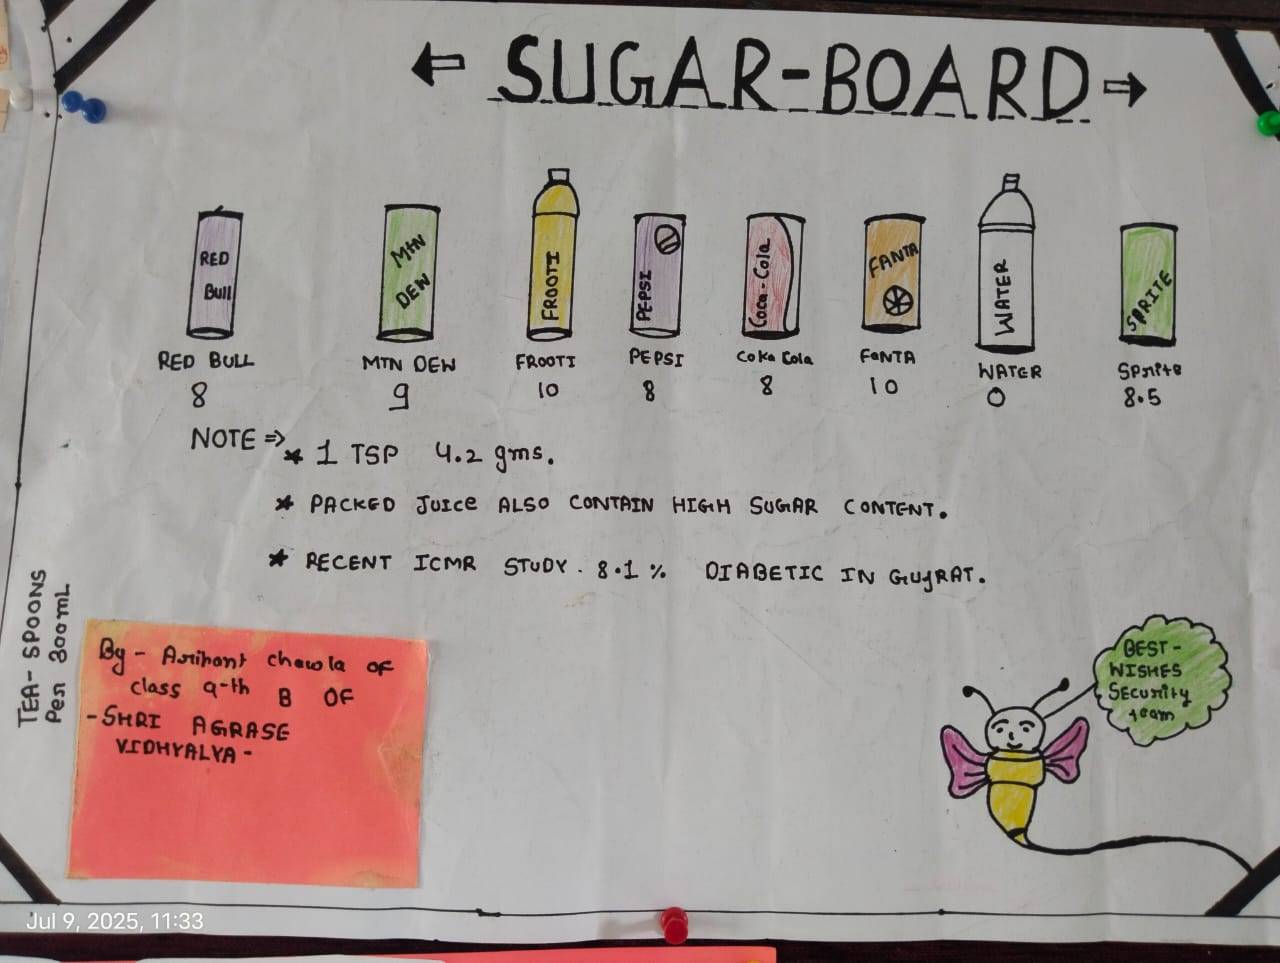 ← SUGAR-BOARD →
RED
Bull
MtN
DEW
FROOTI
PEPSI
Coca-Cola
FANTA
WATER
SPRITE
RED BULL
MTN DEW
FROOTI
PEPSI
Coka Cola
FANTA
WATER
Sprite
8
9
10
8
8
10
0
8.5
NOTE ⇒
* 1 TSP 4.2 gms.
* PACKED JUICE ALSO CONTAIN HIGH SUGAR CONTENT.
* RECENT ICMR STUDY. 8.1 % DIABETIC IN GUJRAT.
TEA-SPOONS
Per 300mL
By - Arihant chawla of
class 9-th B OF
-SHRI AGRASE
VIDHYALYA-
BEST-
WISHES
Security
team
Jul 9, 2025, 11:33